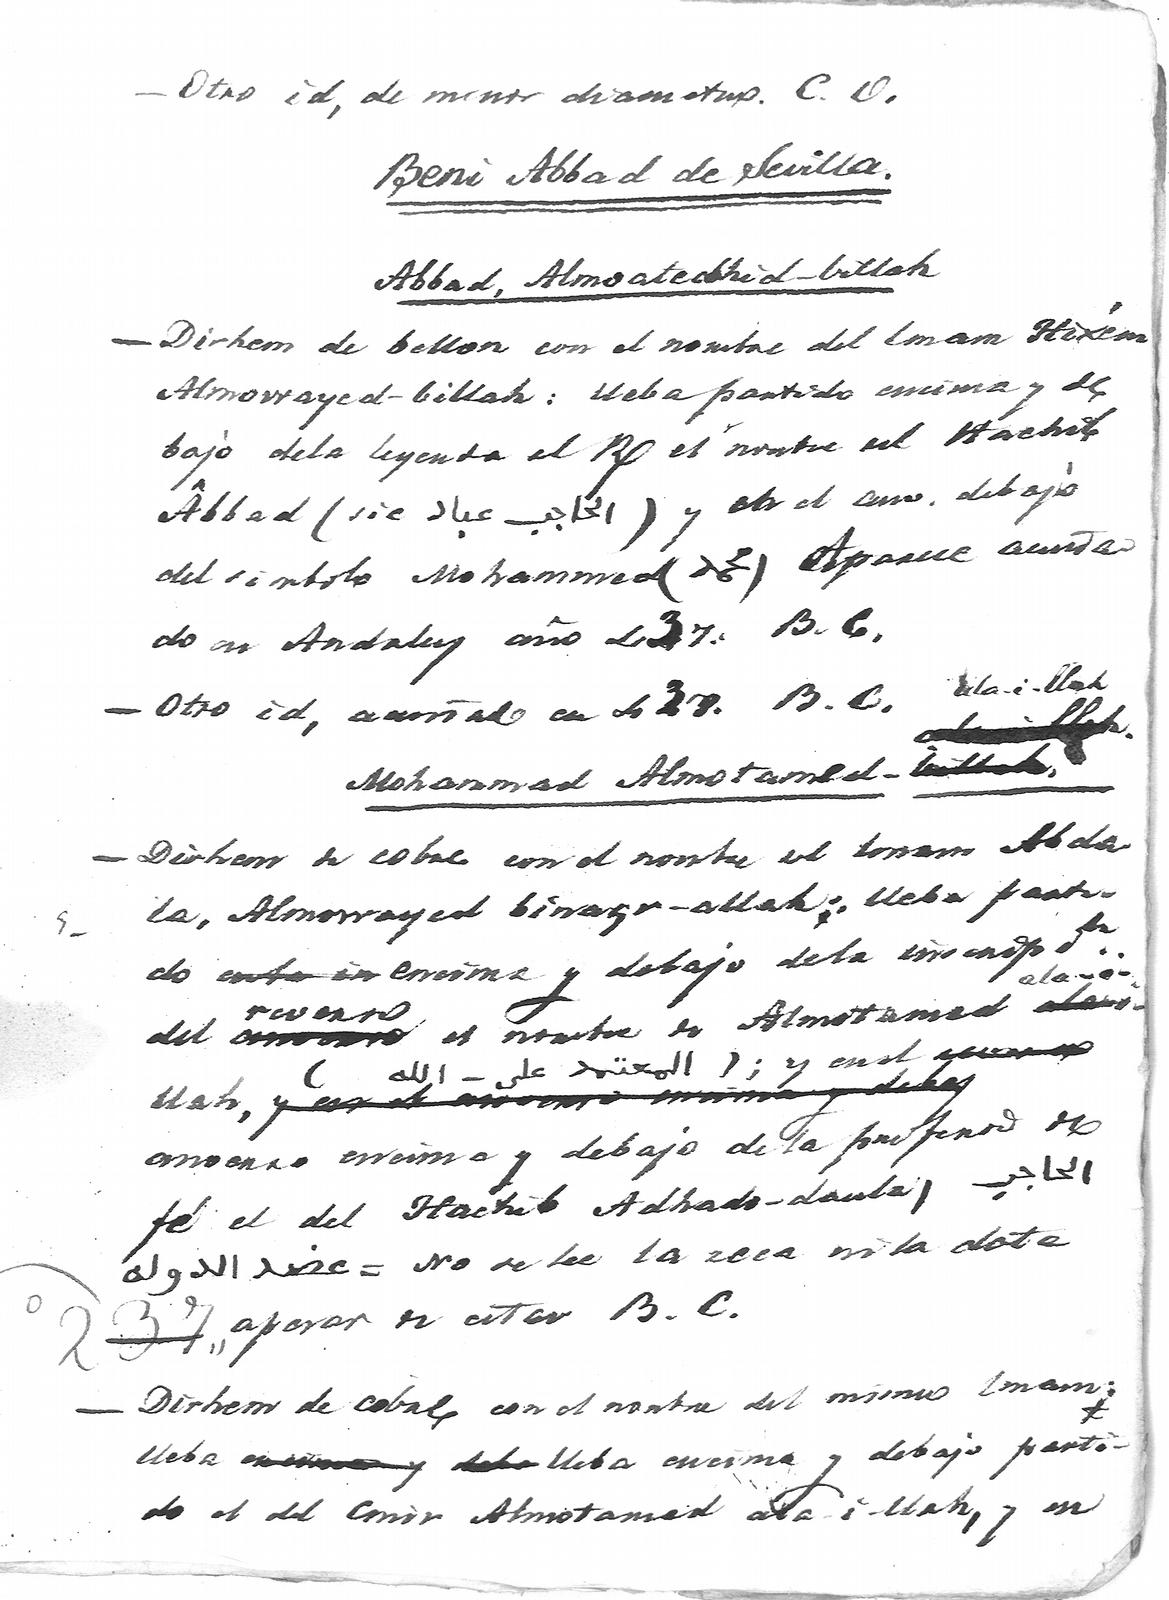 — Otro id, de menor diametro. C. O.
Beni Abbad de Sevilla.
Abbad, Almoatedhid-billah
— Dirhem de bellon con el nombre del Imam Hixém
Almowayed-billah: lleba partido encima y de
bajo dela leyenda del R el nombre del Hachib
Âbbad (sic الحاجب عباد) y en el anv. debajo
del simbolo Mohammed (محمد) Aparece acuña-
do en Andaluz año 437. B. C.
— Otro id, acuñado en 438. B. C.
ala-i-llah
Mohammad Almotamed-billah.
— Dirhem de cobre con el nombre del Imam Abda-
la, Almowayed binasr-allah: lleba parti-
do en la in encima y debajo dela inscripon
ala-i-
reverso
del anverso el nombre de Almotamed
(المعتمد على - الله); y en el
llah, y en el anverso encima y debaj
anverso encima y debajo de la profesion de
fé el del Hachib Adhado-daula, الحاجب
عضد الدوله = No se lee la zeca ni la data
237 „ apesar de estar B. C.
— Dirhem de cobre con el nombre del mismo Imam:
lleba encima y deba lleba encima y debajo parti-
do el del Emir Almotamed ala-i-llah, y en